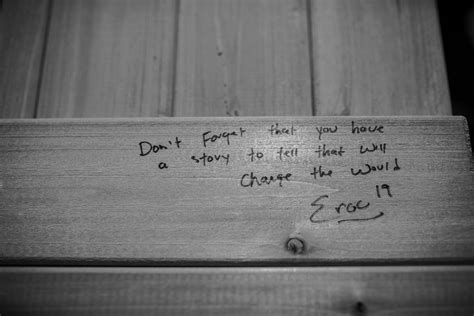 Don't Forget that you have
a story to tell that will
change the would
Eroc 19